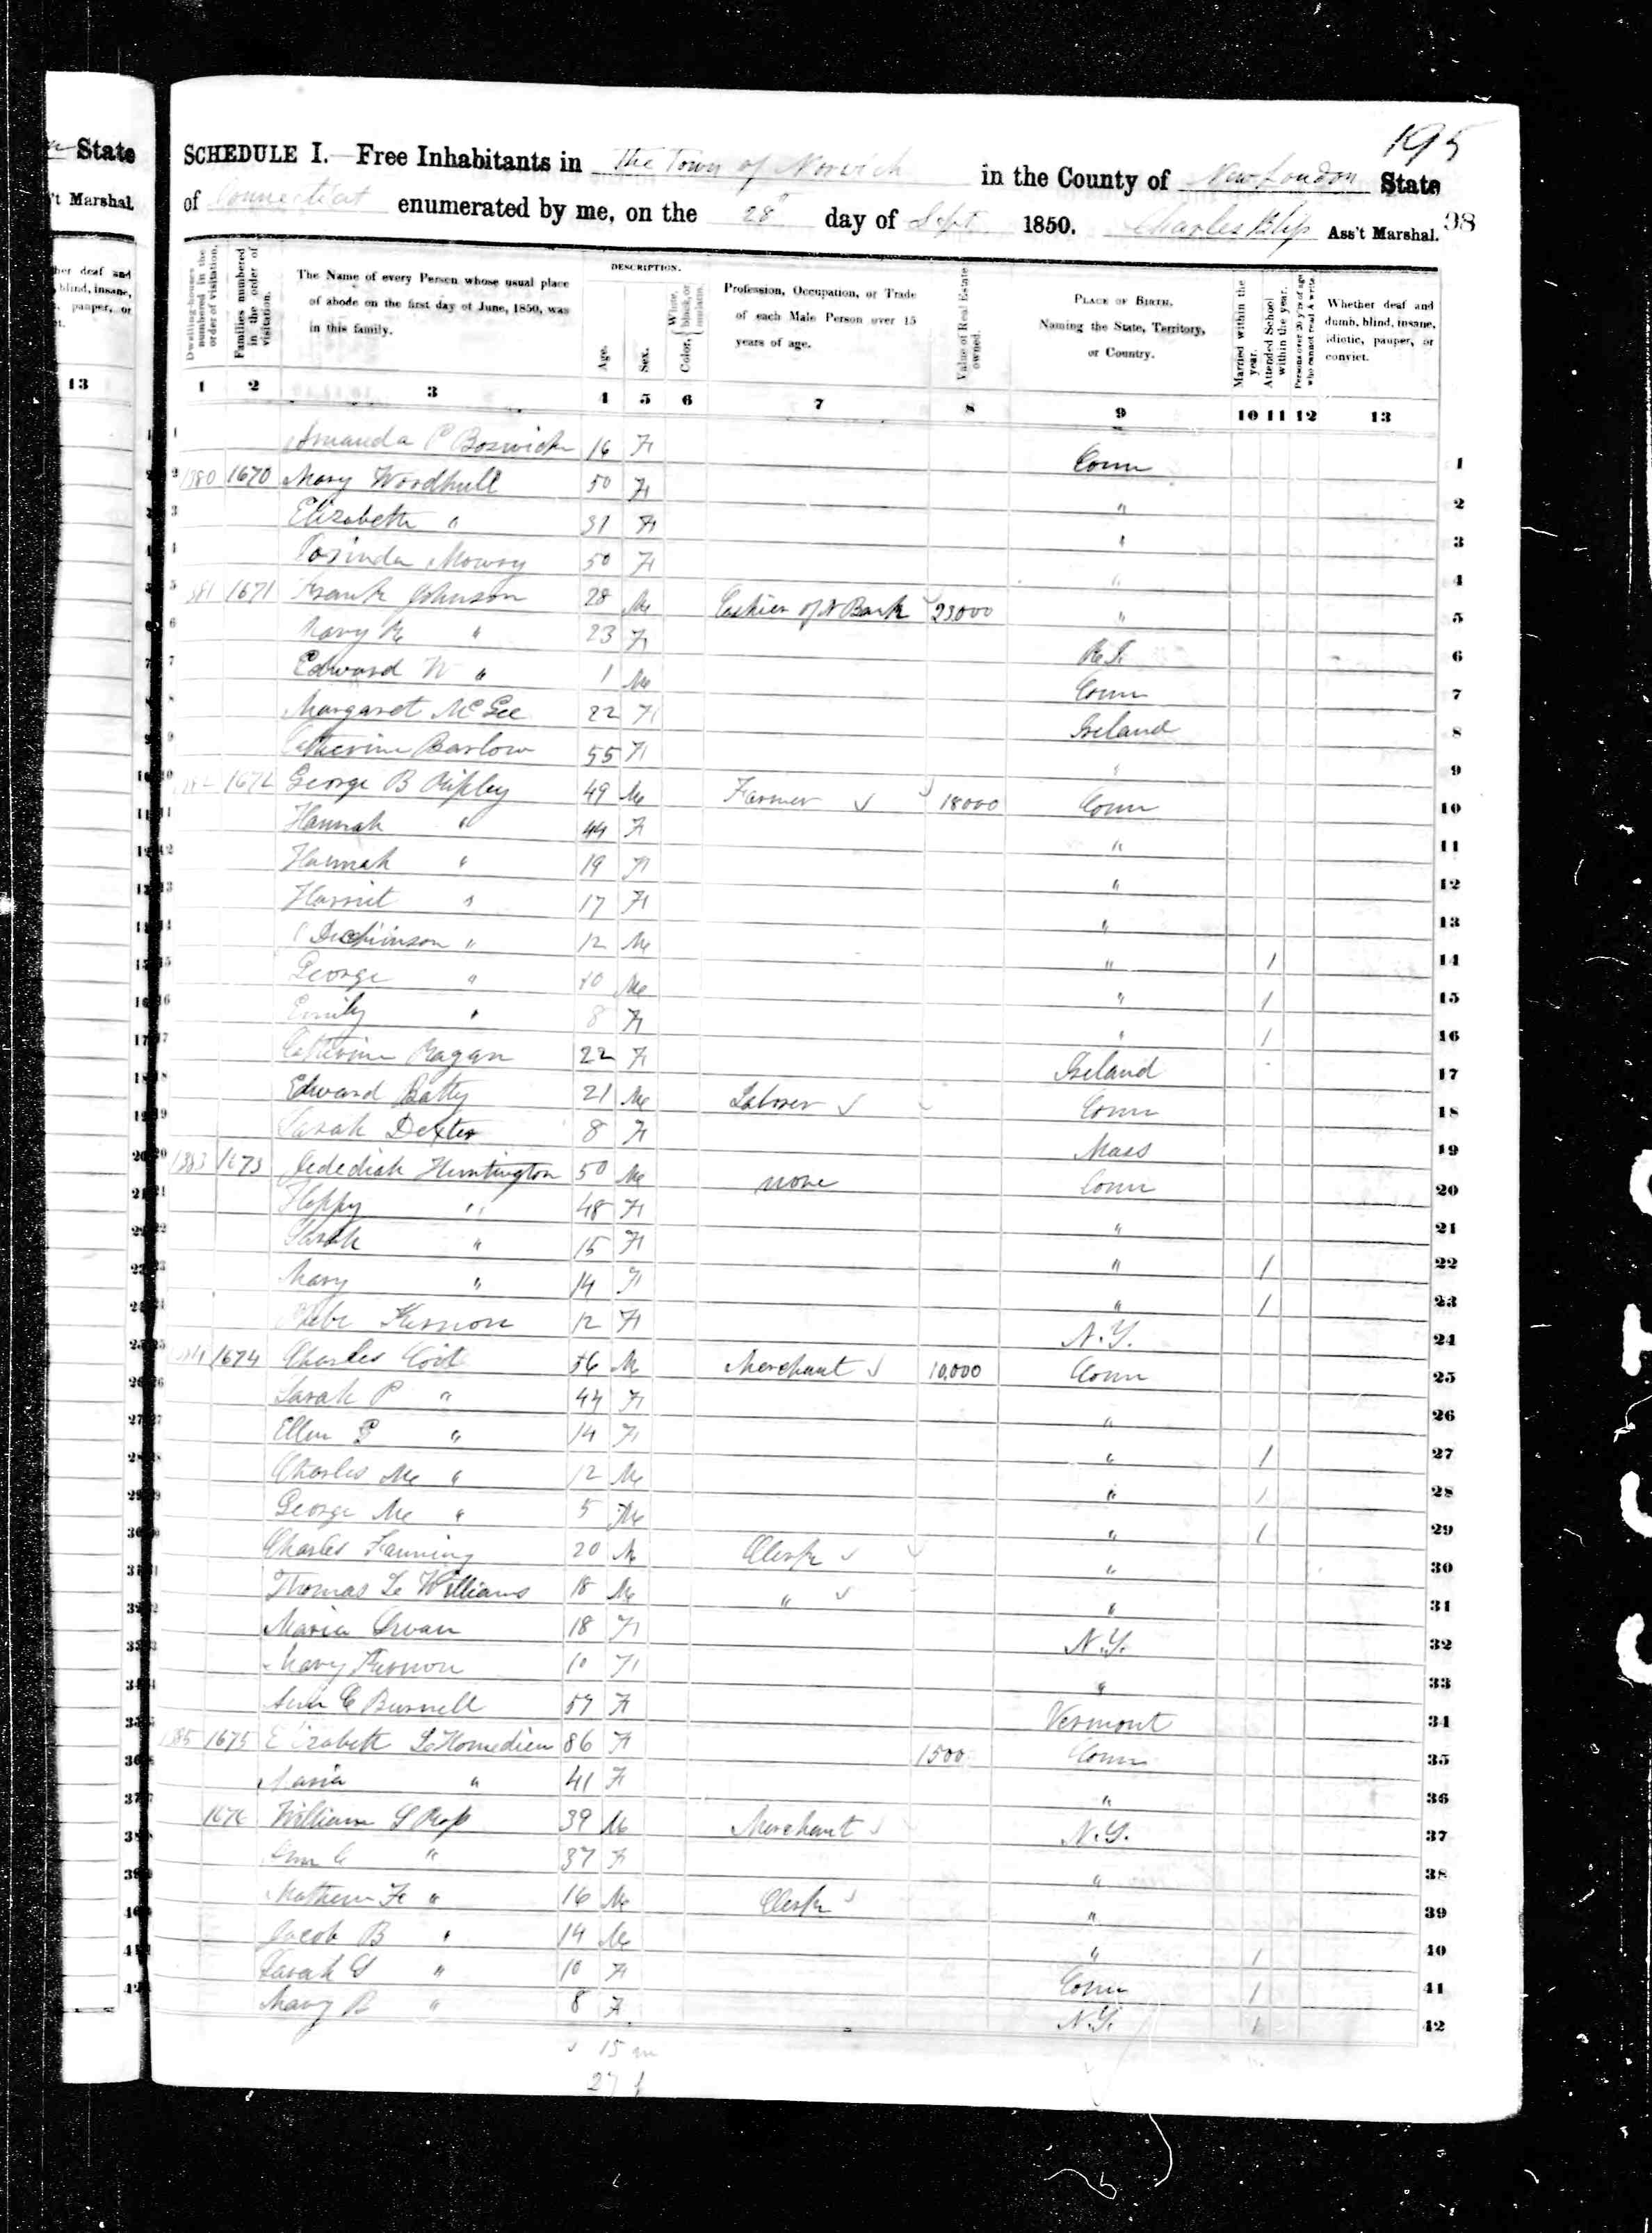 195
SCHEDULE I.—Free Inhabitants in The Town of Norwich in the County of New London State
of Connecticut enumerated by me, on the 28" day of Sept 1850. Charles Bliss Ass't Marshal. 98
State
't Marshal.
her deaf and
blind, insane,
pauper, or
13
Dwelling-houses numbered in the order of visitation.
Families numbered in the order of visitation.
The Name of every Person whose usual place of abode on the first day of June, 1850, was in this family.
DESCRIPTION.
Age.
Sex.
Color, White, black, or mulatto.
Profession, Occupation, or Trade of each Male Person over 15 years of age.
Value of Real Estate owned.
PLACE OF BIRTH, Naming the State, Territory, or Country.
Married within the year.
Attended School within the year.
Persons over 20 y'rs of age who cannot read & write.
Whether deaf and dumb, blind, insane, idiotic, pauper, or convict.
1 2 3 4 5 6 7 8 9 10 11 12 13
1 Amanda P Boswick 16 F Conn 1
2 1380 1670 Mary Woodhull 50 F " 2
3 Elizabeth " 31 F " 3
4 Mowry 50 F " 4
5 381 1671 Frank Johnson 28 M Cashier of N Bank 23000 " 5
6 Mary " 23 F R.I. 6
7 Edward W " 1 M Conn 7
8 Margaret McGee 22 F Ireland 8
9 Catherine Barlow 55 F " 9
10 1672 George B Ripley 49 M Farmer 18000 Conn 10
11 Hannah " 44 F " 11
12 Hannah " 19 F " 12
13 Harriet " 17 F " 13
14 Dickinson " 12 M " 1 14
15 George " 10 M " 1 15
16 Emily " 8 F " 1 16
17 Catherine Ragan 22 F Ireland 17
18 Edward Batty 21 M Laborer Conn 18
19 Sarah Dexter 8 F Mass 19
20 1383 1673 Jedediah Huntington 50 M none Conn 20
21 Happy " 48 F " 21
22 Sarah " 15 F " 1 22
23 Mary " 14 F " 1 23
24 12 F N.Y. 24
25 1674 Charles Coit 56 M Merchant 10,000 Conn 25
26 Sarah P " 44 F " 26
27 Ellen P " 14 F " 1 27
28 Charles M " 12 M " 1 28
29 George M " 5 M " 1 29
30 Charles Fanning 20 M Clerk " 30
31 Thomas Williams 18 M " " 31
32 Maria Swan 18 F N.Y. 32
33 Mary 10 F " 33
34 Burnell 57 F Vermont 34
35 385 1675 Elizabeth L'Homedieu 86 F 1500 Conn 35
36 Maria " 41 F " 36
37 1676 William 39 M Merchant N.Y. 37
38 Ann C " 37 F " 38
39 Mathew F " 16 M Clerk " 39
40 Jacob B " 14 M " 1 40
41 Sarah " 10 F Conn 1 41
42 Mary B " 8 F N.Y. 1 42
15 m
27 f